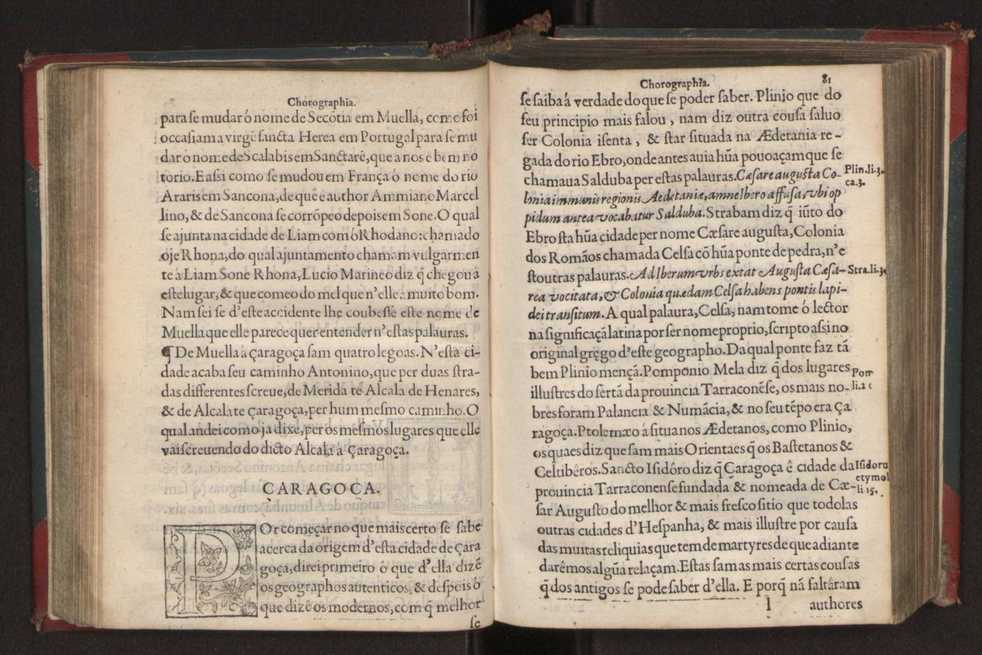 Chorographia.
para se mudar ó nome de Secotia em Muella, como foi
occasiam a virgẽ sancta Herea em Portugal para se mu
dar o nome de Scalabis em Sanctarẽ, que a nos é bem no
torio. E assi como se mudou em França ó nome do rio
Araris em Sancona, de que é author Ammiano Marcel
lino, & de Sancona se corrõpeo depois em Sone. O qual
se ajunta na cidade de Liam com ó Rhodano: chamado
oje Rhona, do qual ajuntamento chamam vulgarmen
te á Liam Sone Rhona, Lucio Marineo diz q̃ chegou á
este lugar, & que comeo do mel que n'elle á muito bom.
Nam sei se d'este accidente lhe coubesse este nome de
Muella que elle parece querentender n'estas palauras.
¶ De Muella á çaragoça sam quatro legoas. N'esta ci-
dade acaba seu caminho Antonino, que per duas stra-
das differentes screue, de Merida té Alcala de Henares,
& de Alcala te çaragoça, per hum mesmo caminho. O
qual andei como ja dixe, per os mesmos lugares que elle
vai screuendo do dicto Alcala á Çaragoça.
ÇARAGOÇA.
POr começar no que mais certo se sabe
acerca da origem d'esta cidade de çara
goça, direi primeiro ó que d'ella dizẽ
os geographos autenticos, & despois ó
que dizẽ os modernos, com q̃ melhor
se
Chorographia. 81
se saiba á verdade do que se poder saber. Plinio que do
seu principio mais falou, nam diz outra cousa saluo
ser Colonia isenta, & star situada na Ædetania re-
gada do rio Ebro, onde antes auia hũa pouoaçam que se
chamaua Salduba per estas palauras. Cæsare augusta Co-
lonia immunis regionis Aedetaniæ, amne Ibero affusa, vbi op
pidum antea vocabatur Salduba. Strabam diz q̃ iũto do
Ebro sta hũa cidade per nome Cæsare augusta, Colonia
dos Romãos chamada Celsa cõ hũa ponte de pedra, n'e
stoutras palauras. Ad Iberum vrbs extat Augusta Cæsa-
rea vocitata, & Colonia quædam Celsa habens pontis lapi-
dei transitum. A qual palaura, Celsa, nam tome ó lector
na significaçã latina por ser nome proprio, scripto assi no
original grego d'este geographo. Da qual ponte faz tã
bem Plinio mençã. Pomponio Mela diz q̃ dos lugares
illustres do sertã da prouincia Tarraconẽse, os mais no-
bres foram Palancia & Numãcia, & no seu tẽpo era Ça
ragoça. Ptolemæo á situa nos Ædetanos, como Plinio,
os quaes diz que sam mais Orientaes q̃ os Bastetanos &
Celtibéros. Sancto Isidóro diz q̃ Çaragoça é cidade da
prouincia Tarraconense fundada & nomeada de Cæ-
sar Augusto do melhor & mais fresco sitio que todolas
outras cidades d'Hespanha, & mais illustre por causa
das muitas reliquias que tem de martyres de que adiante
darémos algũa relaçam. Estas sam as mais certas cousas
q̃ dos antigos se pode saber d'ella. E porq̃ nã saltáram
l authores
Plin. li. 3.
ca. 3.
Stra. li. 3.
Pom
li. 2 c
Isidoru
etymol
li 15.